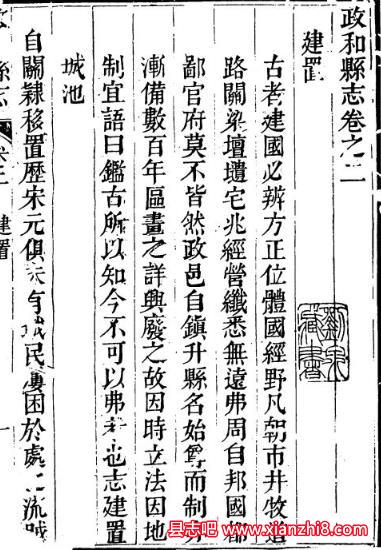 政和縣志卷之二
建置
古者建國必辨方正位體國經野凡朝市井牧道
路關梁壇壝宅兆經營纖悉無遠弗周自邦國都
鄙官府莫不皆然政邑自鎮升縣名始尊而制乃
漸備數百年區畫之詳興廢之故因時立法因地
制宜語曰鑑古所以知今不可以弗考也志建置
城池
自關隸移置歷宋元俱未有城民屢困於處之流賊
縣志
建置
一
县志吧
www.xianzhi8.com